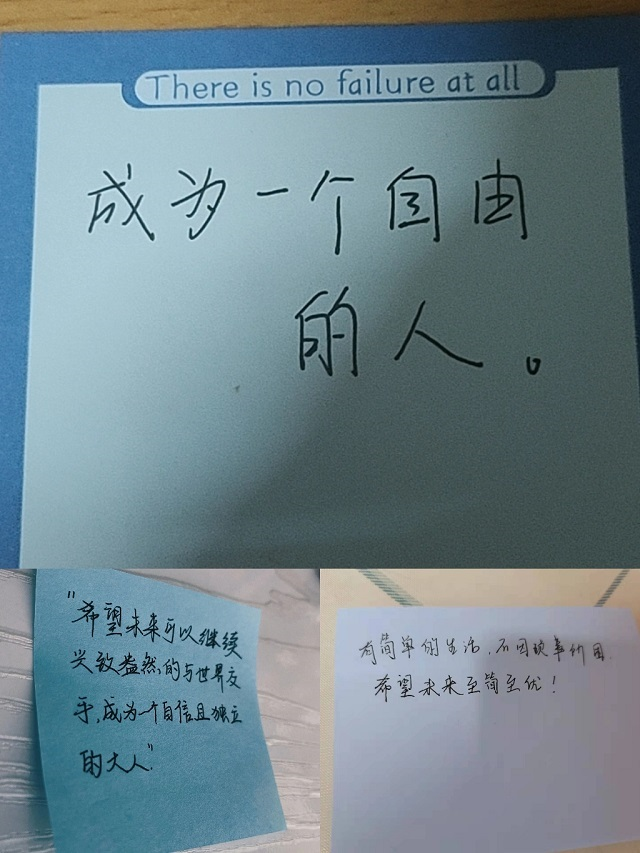 There is no failure at all
成为一个自由
的人。
"希望未来可以继续
兴致盎然的与世界交
手,成为一个自信且独立
的大人"
有简单的生活,不因琐事所困.
希望未来至简至优!